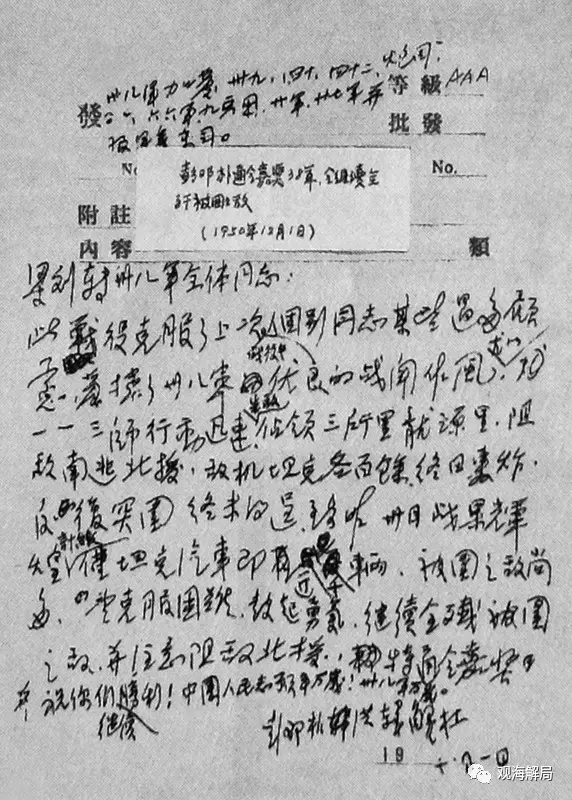 卅八军力一苏,卅九,四十,四十二,炮司,
等級 AAA
發 六六军,九兵团,廿军,廿七军并
批發
报军委东司。
No.
No.
彭邓朴通令嘉奖38军,全继续全
歼被围之敌
(1950年12月1日)
附註
内容 類
梁刘转卅八军全体同志:
此战役克服了上次个别同志某些过多顾
战役中
虑,发挥了卅八军优良的战闻作風,尤以
一一三師行动迅速,先敌佔领三所里龙源里,阻
敌南逃北援,敌机坦克各百馀,终日轰炸,
反復突围终未得逞,至昨卅日战果辉
煌,计缴仅坦克汽車即近千辆,被围之敌尚
多,望克服困难,鼓起勇氣,继续全歼被围
之敌,并注意阻敌北援,特通令嘉奖
并祝你们继续勝利!中國人民志愿军万岁!卅八军万岁。
彭邓朴韩洪解杜
19 十.二.一日
观海解局